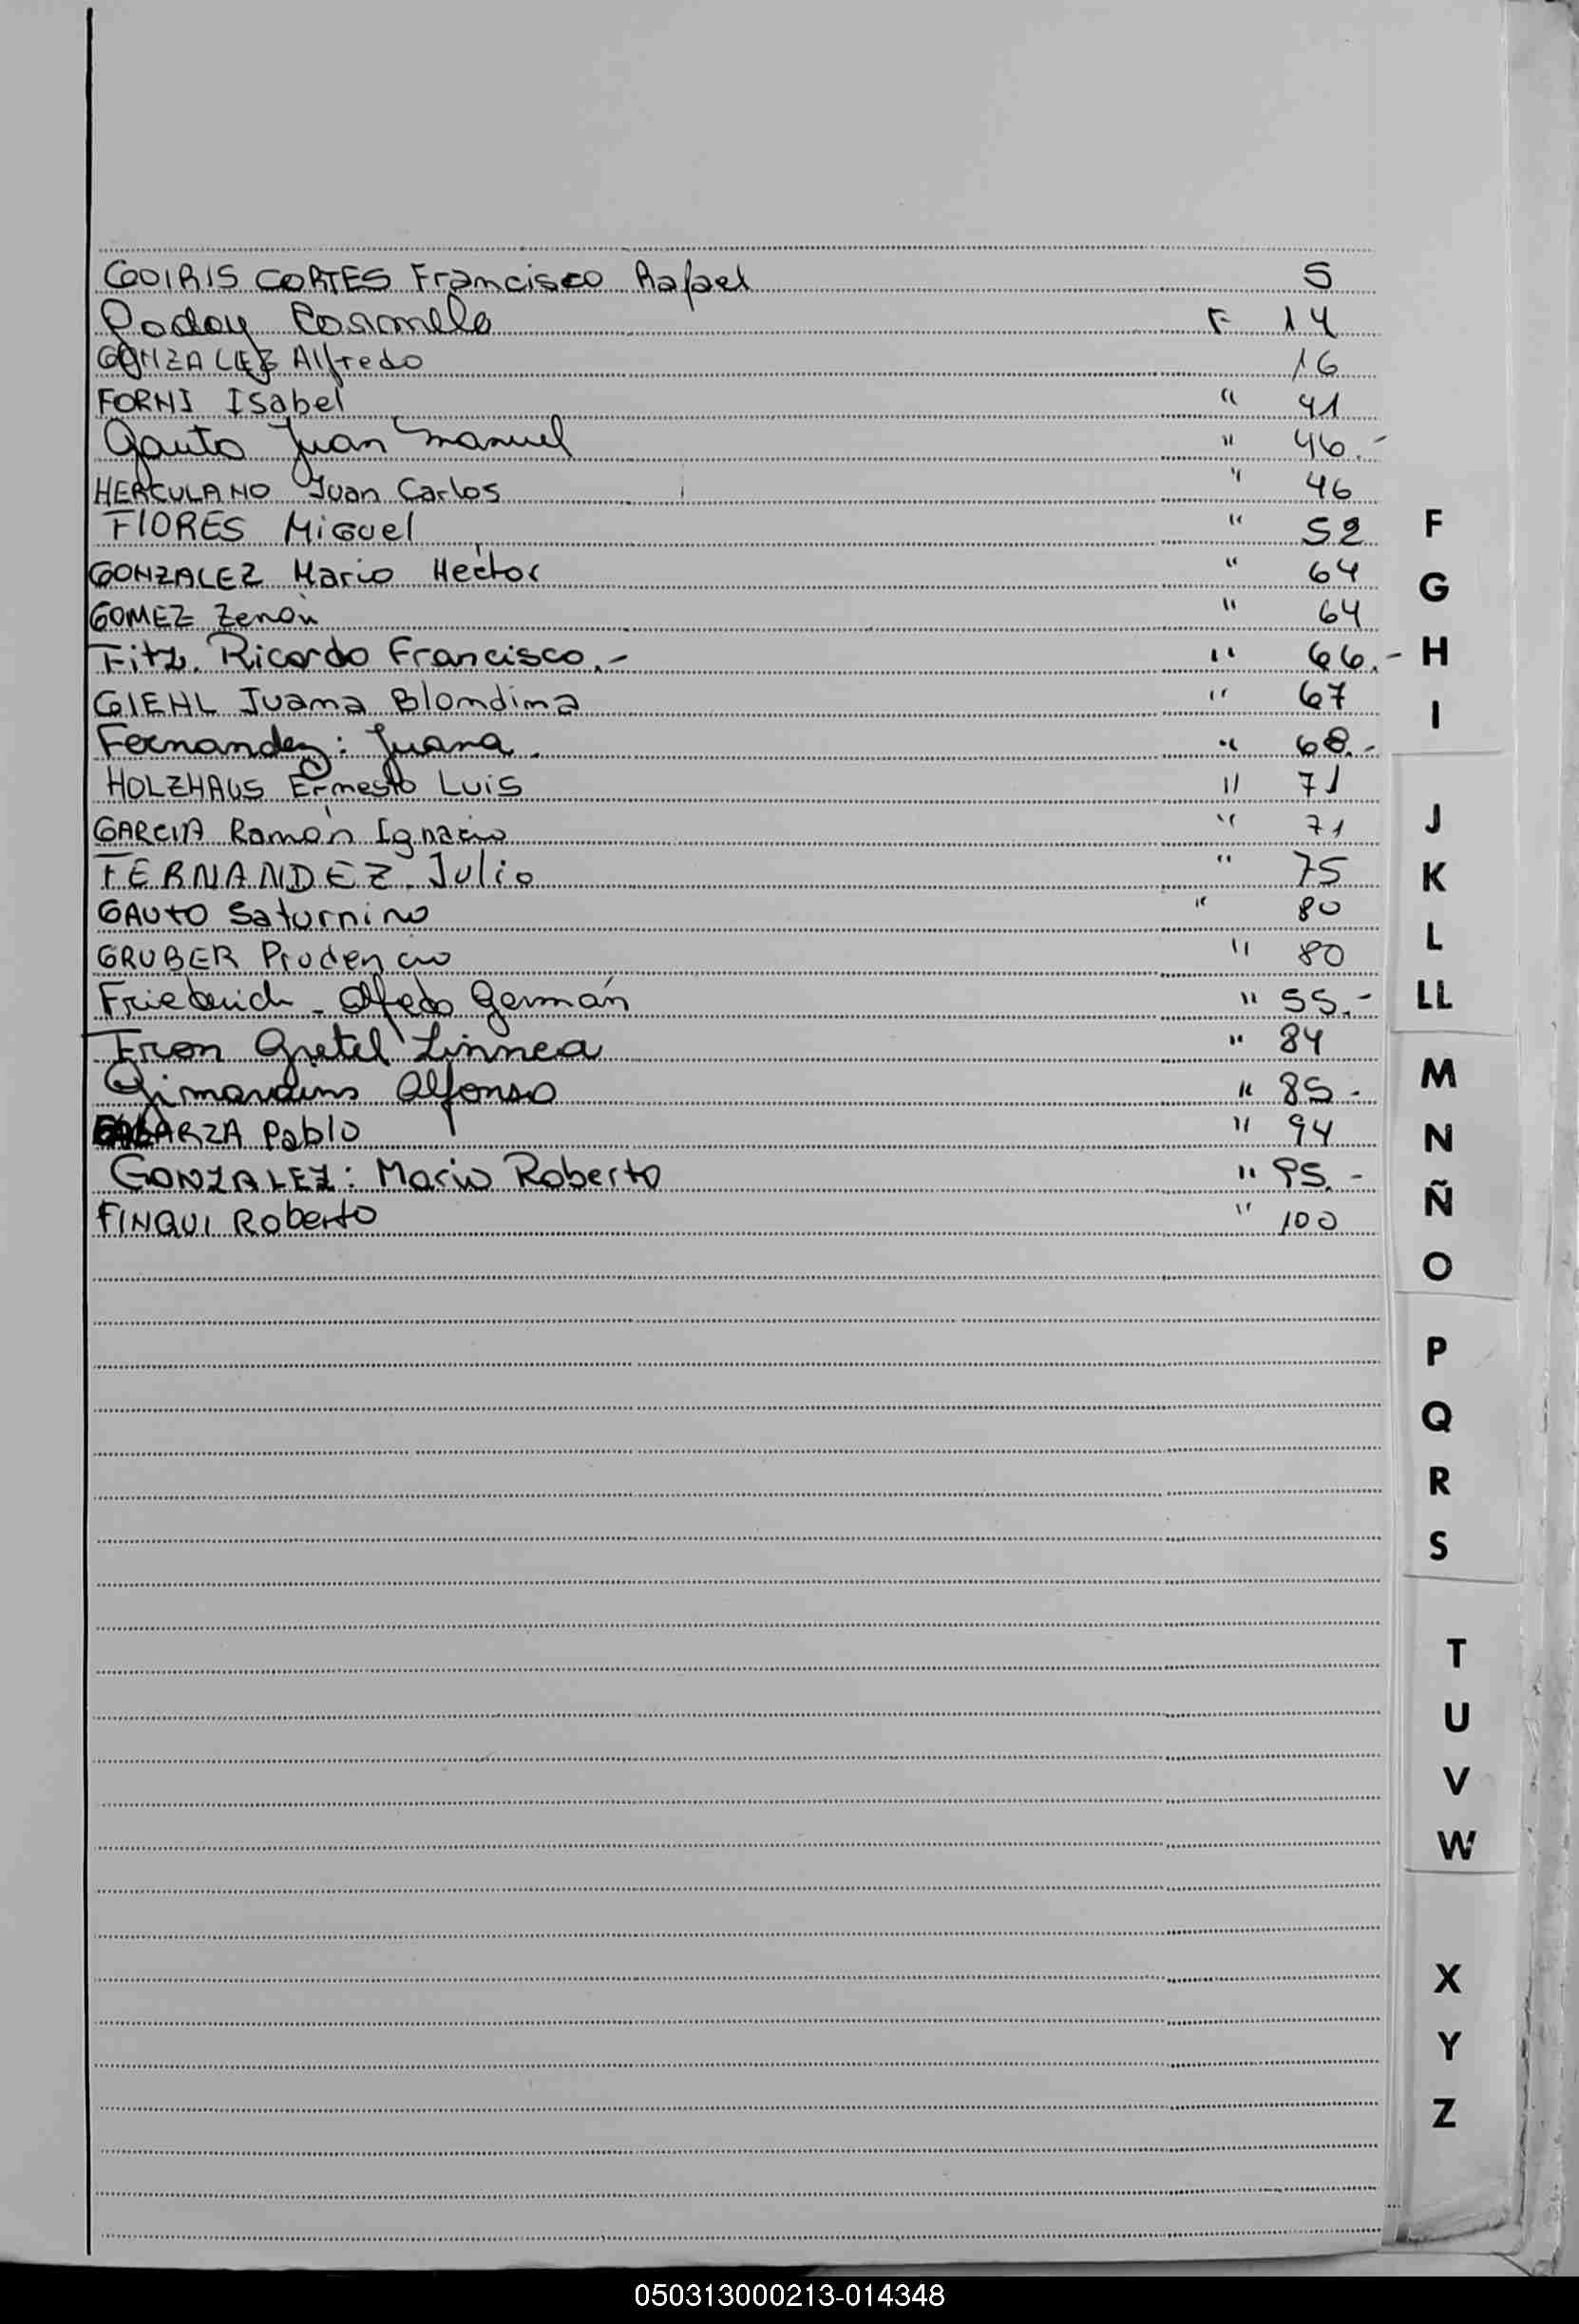 GOIRIS CORTES Francisco Rafael 5
Godoy Carmelo F 14
GONZALEZ Alfredo 16
FORNI Isabel " 41
Gauto Juan Manuel " 46.-
HERCULANO Juan Carlos " 46
FlORES Miguel " 52
GONZALEZ Mario Hector " 64
GOMEZ Zenón " 64
Fitz. Ricardo Francisco.- " 66.-
GIEHL Juana Blondina " 67
Fernandez: Juana. " 68.-
HOLZHAUS Ernesto Luis " 71
GARCIA Ramón Ignacio " 71
FERNANDEZ. Julio " 75
GAUTO Saturnino " 80
GRUBER Prudencio " 80
Friederich - Alfredo Germán " 55.-
Fron Gretel Linnea " 84
Alfonso " 85-
GALARZA Pablo " 94
GONZALEZ: Mario Roberto " 95.-
FINQUI Roberto " 100
F
G
H
I
J
K
L
LL
M
N
Ñ
O
P
Q
R
S
T
U
V
W
X
Y
Z
050313000213-014348